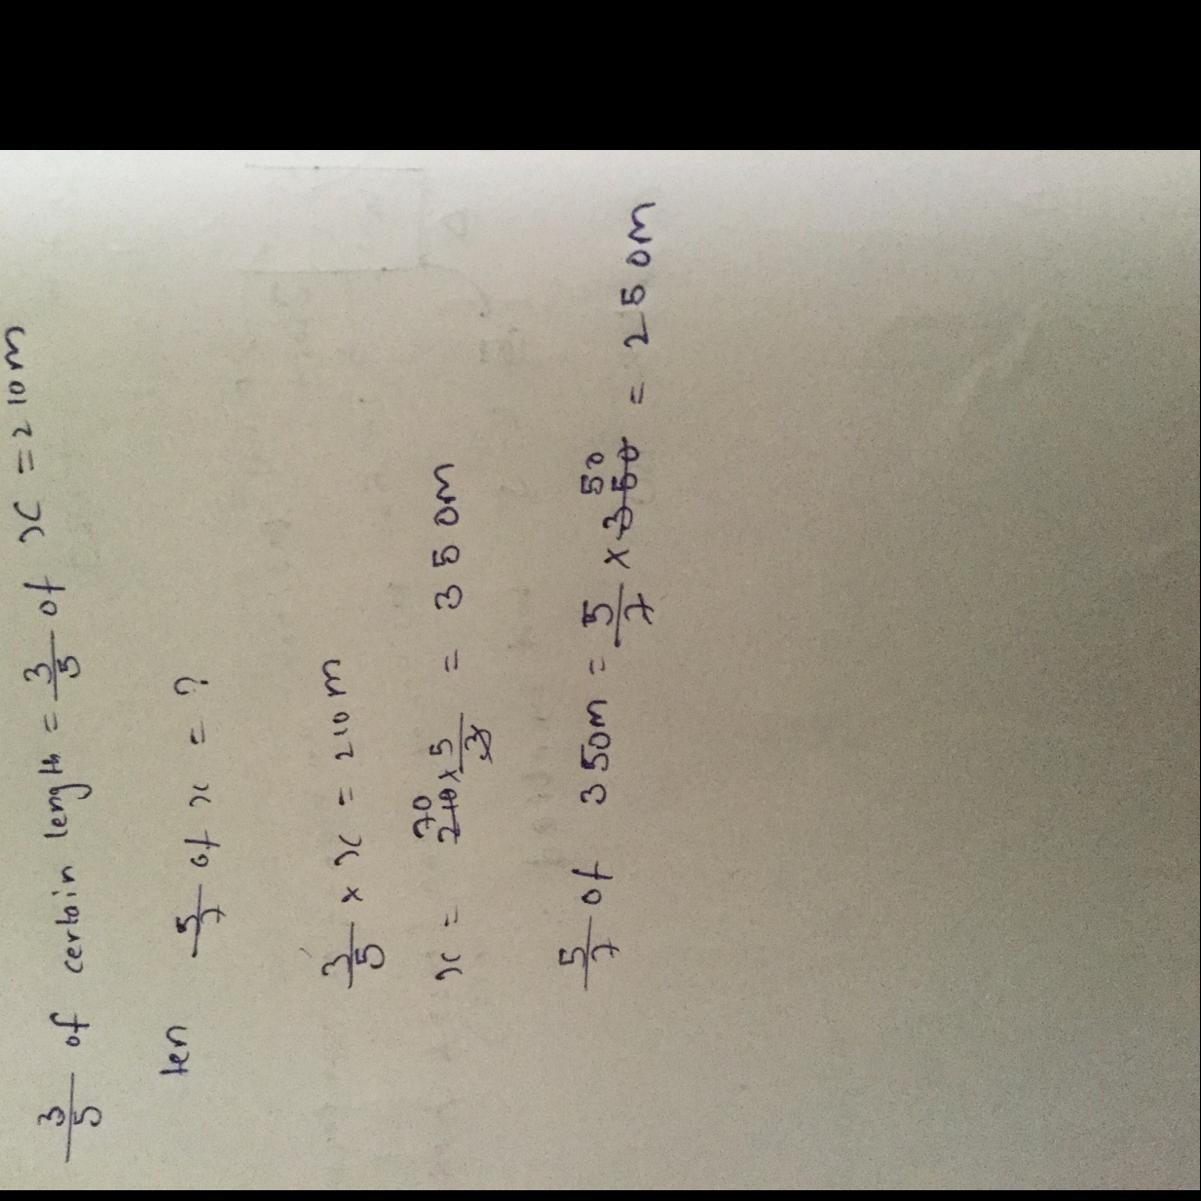 3/5 of certain length = 3/5 of x = 210m
len 5/7 of x = ?
3/5 × x = 210m
x = 70 210 × 5/3 = 350m
5/7 of 350m = 5/7 × 350 50 = 250m